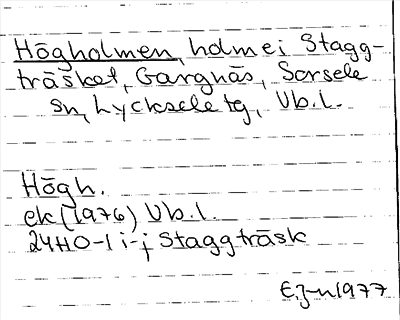 Högholmen, holme i Stagg-
träsket, Gargnäs, Sorsele
sn, Lycksele tg, Vb.l.
Högh.
ek (1976) Vb.l.
24H0-1 i-j Staggträsk
E.J-n 1977